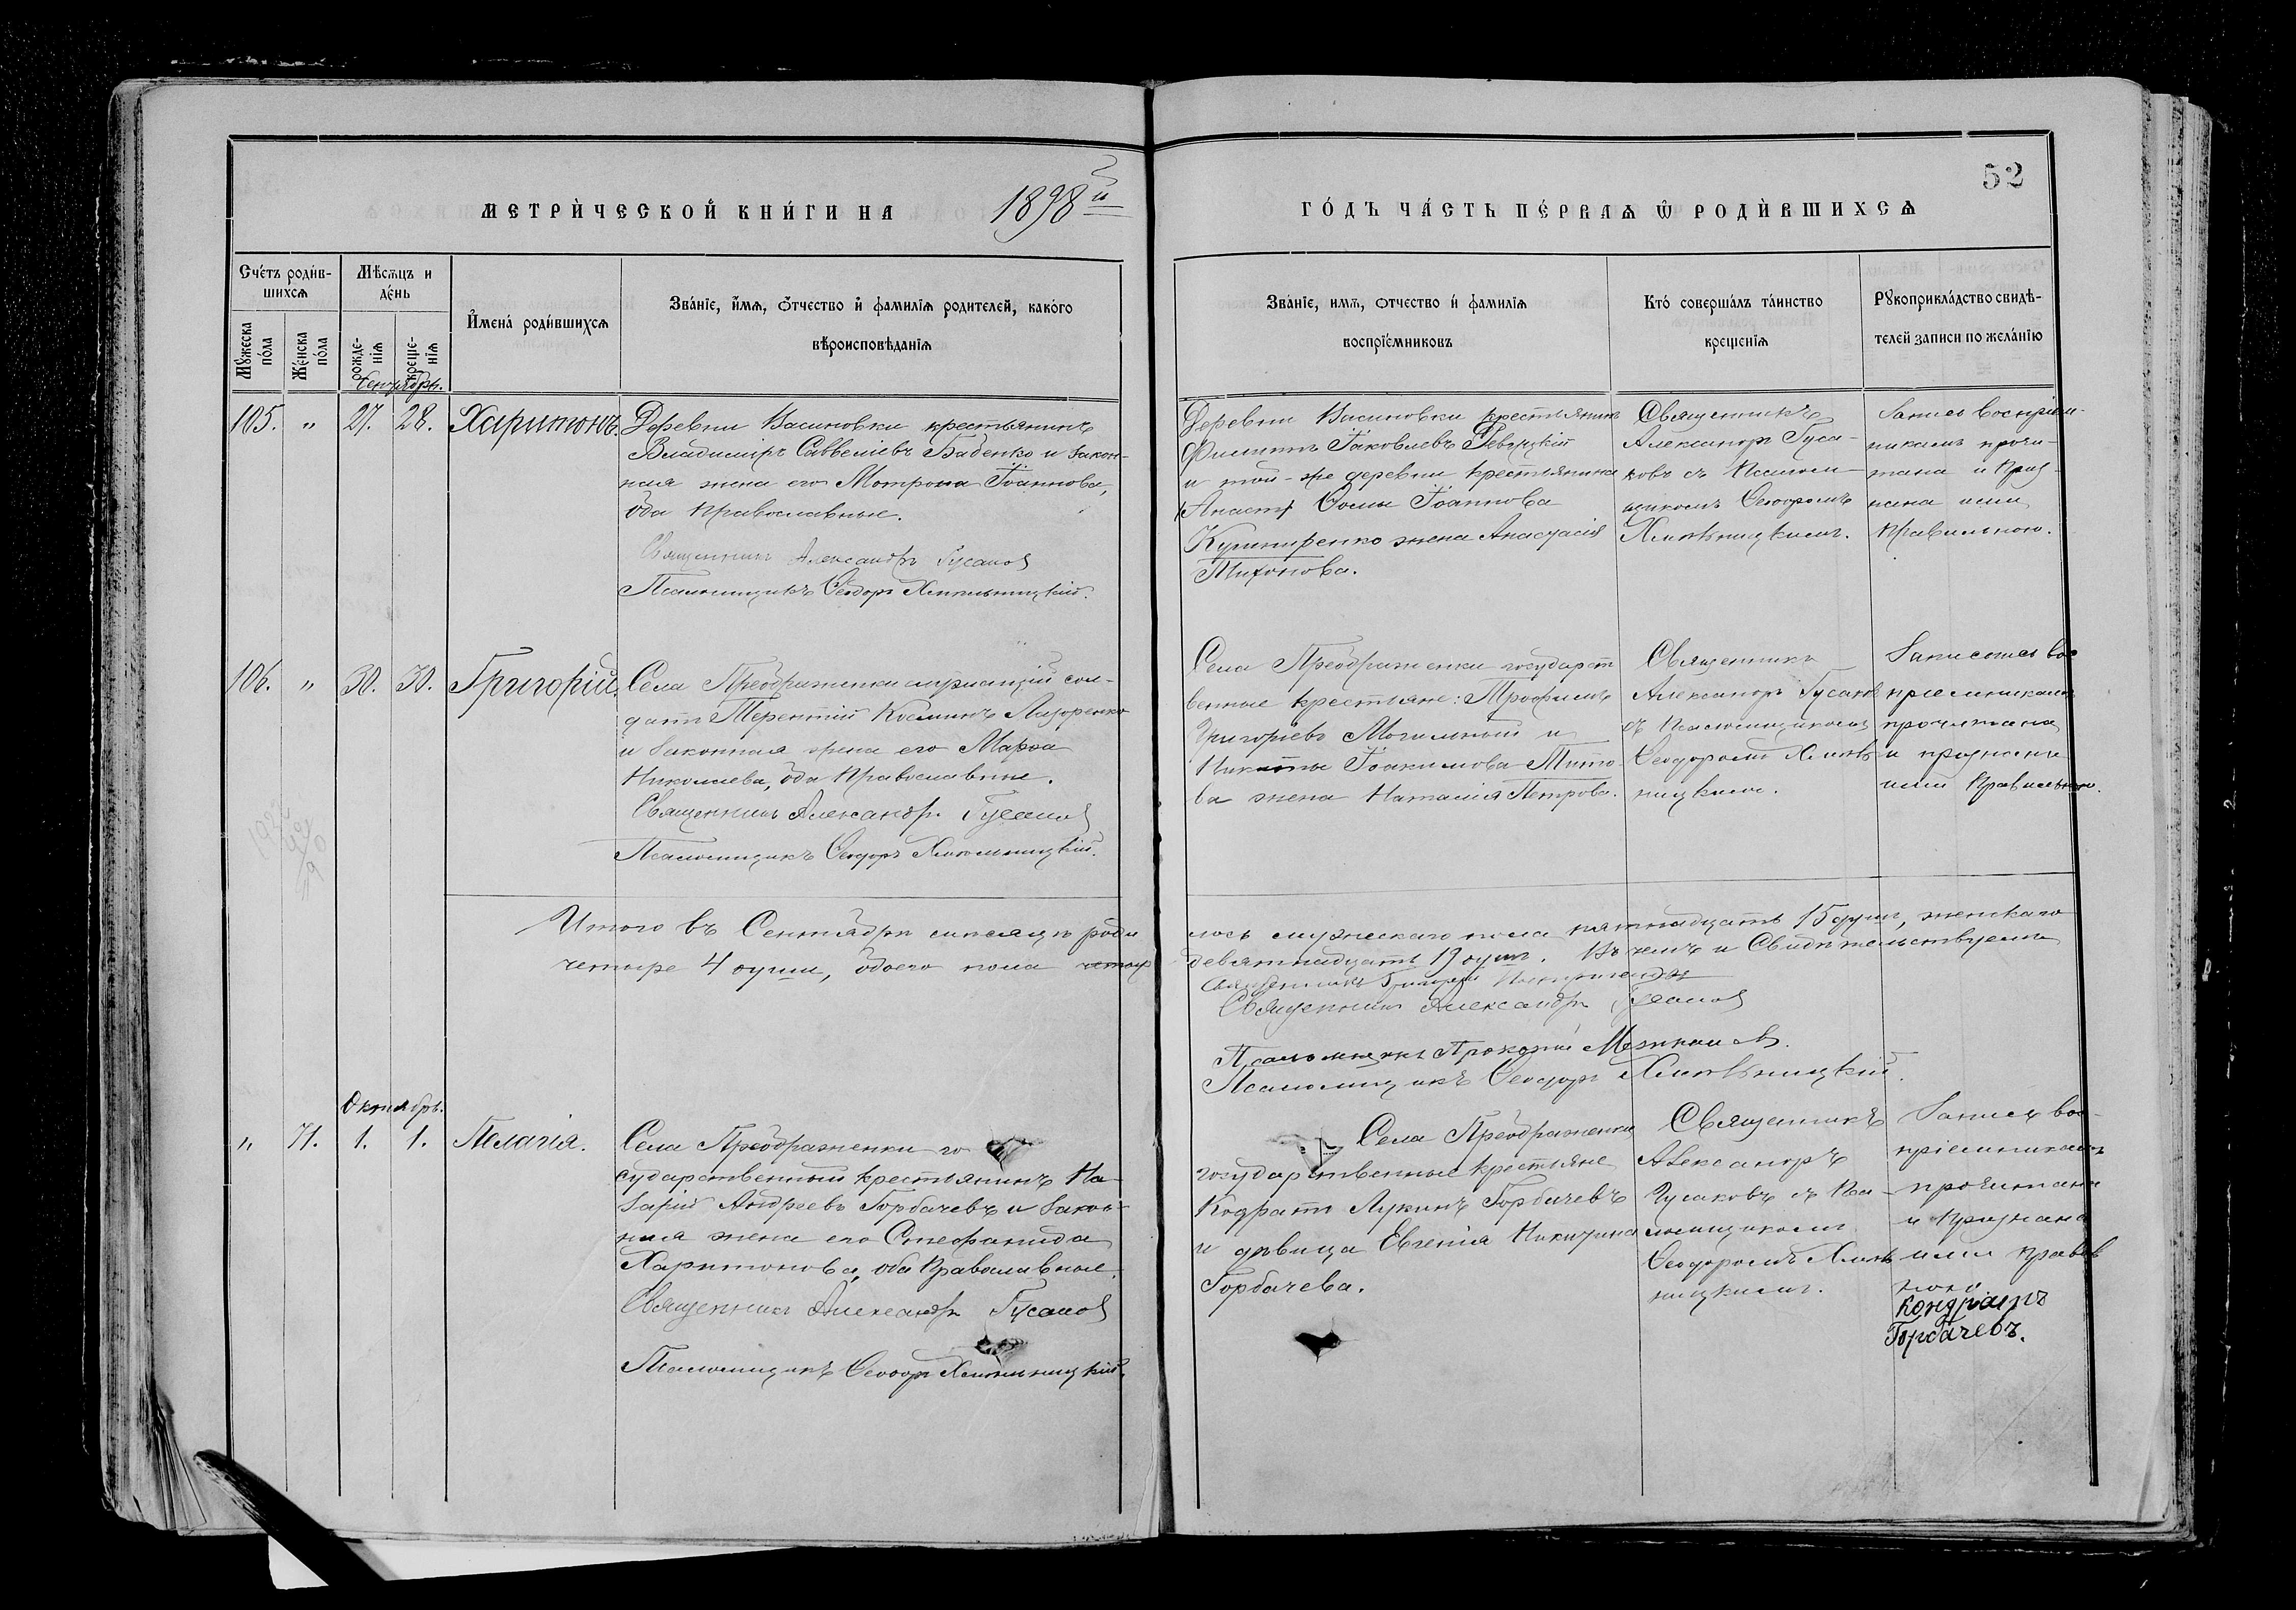 52
МЕТРИ́ЧЕСКОЙ КНИ́ГИ НА 1898й
ГО́ДЪ ЧА́СТЬ ПЕ́РВАѦ Ѡ РОДИ́ВШИХСѦ
Сче́тъ роди́в-
шихсѧ
Мꙋжеска
по́ла
Же́нска
по́ла
Мѣ́сѧцъ и
де́нь
рожде-
нїѧ
креще-
нїѧ
И҆мена́ роди́вшихсѧ
Зва́нїе, и҆́мѧ, ѻ҆́тчество и҆ фамилїѧ родителей, како́го
вѣроисповѣданїѧ
Зва́нїе, имѧ, отчество и҆ фамилїѧ
воспрїе́мниковъ
Кто́ соверша́лъ та́инство
крещенїѧ
Рꙋкоприкла́дство свидѣ-
телей записи по жела́нїю
Сентябрь.
105. " 27. 28. Харитонъ.
Деревни Васиновки крестьянинъ
Владимiръ Савве́лiевъ Баденко и закон-
ная жена его Матрона Іоаннова,
оба православные.
Священникъ Александръ Гусаковъ
Псаломщикъ Ѳеодоръ Хмѣльницкій.
Деревни Васиновки крестьянинъ
Филиппъ Іаковлевъ
и той-же деревни крестьянина
Ѳомы Іоаннова
Кушниренко жена Анастасія
Тихонова.
Священникъ
Александръ Гуса-
ковъ съ Псалом-
щикомъ Ѳеодоромъ
Хмѣльницкимъ.
Запись воспріем-
никамъ прочи-
тана и приз-
нана ими
правильною.
106. " 30. 30. Григорій.
Села Преображенки служащій сол-
датъ Терентій Косминъ Лазоренко
и законная жена его Марѳа
Николаева, оба православные.
Священникъ Александръ Гусаковъ
Псаломщикъ Ѳеодоръ Хмѣльницкій.
Села Преображенки государст
венные крестьяне: Трофимъ
Григорьевъ Могильный и
Никиты Іоакимова Тито
ва жена Наталія Петрова.
Священникъ
Александръ Гусаковъ
съ Псаломщикомъ
Ѳеодоромъ Хмѣль
ницкимъ.
Запись сія вос
пріемникамъ
прочитана
и признана
ими правильною.
Итого въ Сентябрѣ мѣсяцѣ роди
лось мужескаго пола пятнадцать 15 душъ, женскаго
четыре 4 души, обоего пола четыр
девятнадцать 19 душъ. Въ чемъ и Свидѣтельствуемъ
Священникъ Григорій
Священникъ Александръ Гусаковъ
Псаломщикъ Прокопій
Псаломщикъ Ѳеодоръ Хмѣльницкій.
Октябрь.
" 71. 1. 1. Пелагія.
Села Преображенки го
сударственный крестьянинъ На-
зарій Андреевъ Горбачевъ и закон-
ная жена его Стефанида
Харитонова, оба православные.
Священникъ Александръ Гусаковъ
Псаломщикъ Ѳеодоръ Хмѣльницкій.
Села Преображенки
государственные крестьяне
Кодратъ Лукинъ Горбачевъ
и дѣвица Евгенія Никитина
Горбачева.
Священникъ
Александръ
Гусаковъ съ Пса-
ломщикомъ
Ѳеодоромъ Хмѣль
ницкимъ.
Запись вос-
пріемникамъ
прочитана
и признана
ими правиль
ною.
Кондратъ
Горбачевъ.